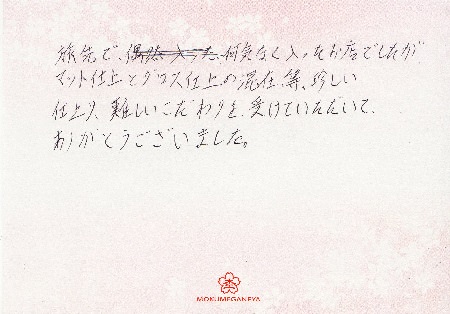 旅先で、何気なく入ったお店でしたが
マット仕上とグロス仕上の混在、等、珍しい
仕上り、難しいこだわりを、受けていただいて、
ありがとうございました。
MONUMEGANEYA